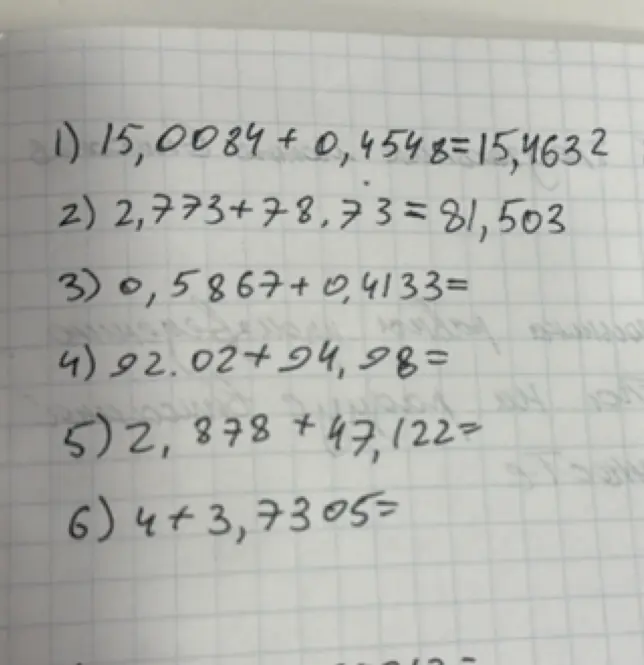 1) 15,0084 + 0,4548 = 15,4632
2) 2,773 + 78.73 = 81,503
3) 0,5867 + 0,4133 =
4) 92.02 + 94,98 =
5) 2,878 + 47,122 =
6) 4 + 3,7305 =